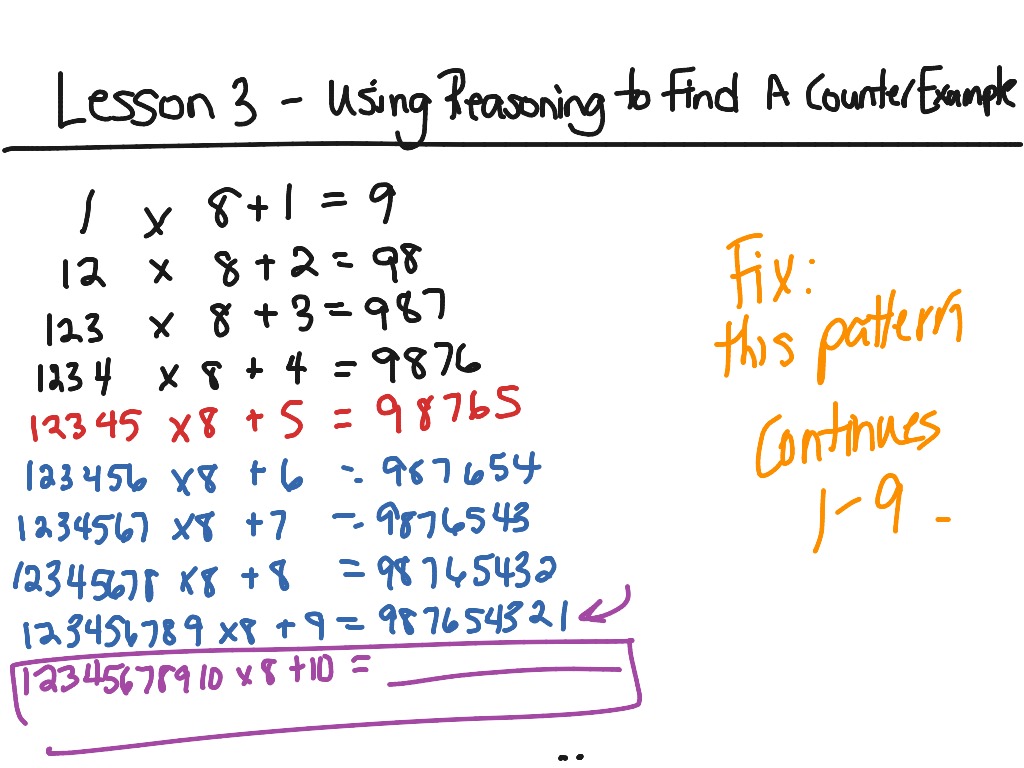 Lesson 3 - Using Reasoning to Find A Counter Example
1 x 8 + 1 = 9
12 x 8 + 2 = 98
123 x 8 + 3 = 987
1234 x 8 + 4 = 9876
12345 x 8 + 5 = 98765
123456 x 8 + 6 = 987654
1234567 x 8 + 7 = 9876543
12345678 x 8 + 8 = 98765432
123456789 x 8 + 9 = 987654321
12345678910 x 8 + 10 =
Fix:
this pattern
Continues
1-9 -